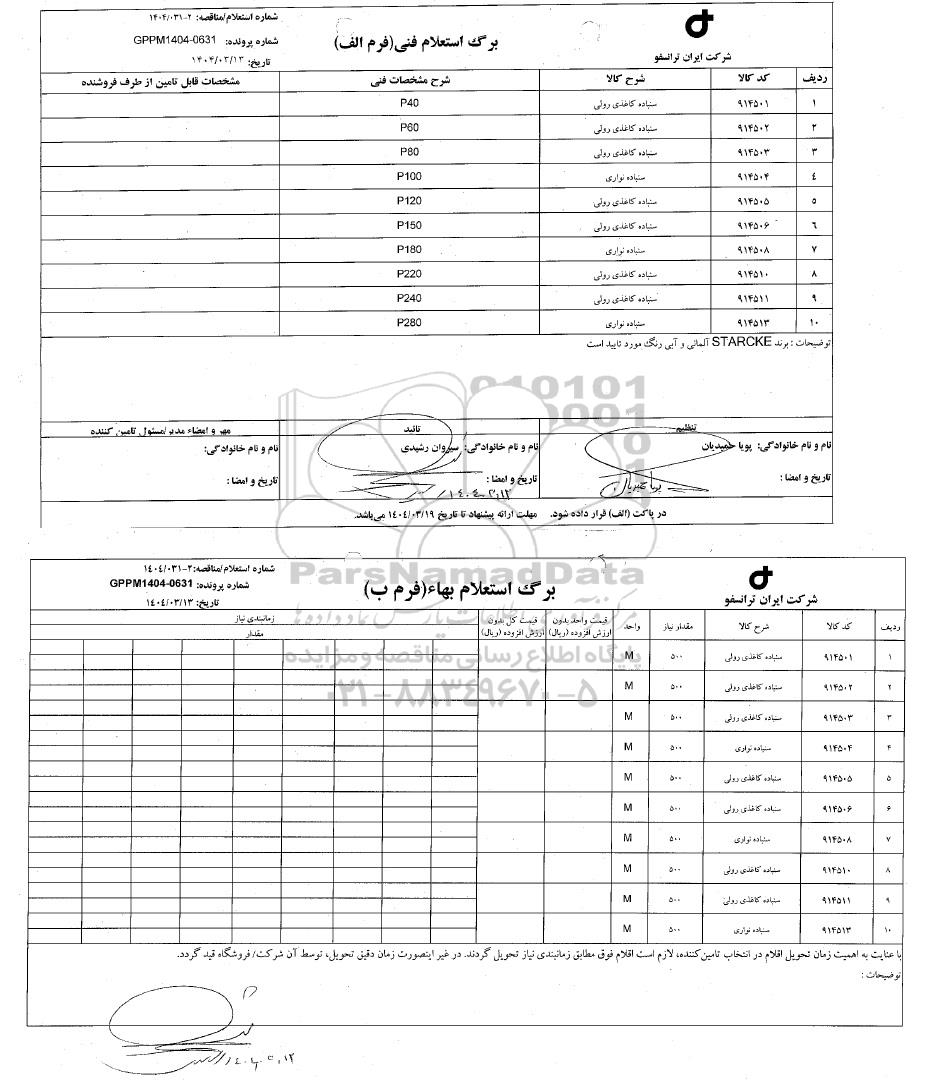 شماره استعلام/مناقصه: ۲-۱۴۰۴/۰۳۱
برگ استعلام فنی(فرم الف)
شماره پرونده: GPPM1404-0631
شرکت ایران ترانسفو
تاریخ: ۱۴۰۴/۰۳/۱۳
ردیف کد کالا شرح کالا شرح مشخصات فنی مشخصات قابل تامین از طرف فروشنده
۱ ۹۱۴۵۰۱ سنباده کاغذی رولی P40
۲ ۹۱۴۵۰۲ سنباده کاغذی رولی P60
۳ ۹۱۴۵۰۳ سنباده کاغذی رولی P80
٤ ۹۱۴۵۰۴ سنباده نواری P100
۵ ۹۱۴۵۰۵ سنباده کاغذی رولی P120
٦ ۹۱۴۵۰۶ سنباده کاغذی رولی P150
۷ ۹۱۴۵۰۸ سنباده نواری P180
۸ ۹۱۴۵۱۰ سنباده کاغذی رولی P220
۹ ۹۱۴۵۱۱ سنباده کاغذی رولی P240
۱۰ ۹۱۴۵۱۳ سنباده نواری P280
توضیحات : برند STARCKE آلمانی و آبی رنگ مورد تایید است
تنظیم تائید مهر و امضاء مدیر/مسئول تامین کننده
نام و نام خانوادگی: پویا حمیدیان نام و نام خانوادگی: سیروان رشیدی نام و نام خانوادگی:
تاریخ و امضا : تاریخ و امضا : تاریخ و امضا :
در پاکت (الف) قرار داده شود. مهلت ارائه پیشنهاد تا تاریخ ۱۴۰۴/۰۳/۱۹ می‌باشد.
شماره استعلام/مناقصه: ۲-۱۴۰۴/۰۳۱
شماره پرونده: GPPM1404-0631
برگ استعلام بهاء(فرم ب)
شرکت ایران ترانسفو
تاریخ: ۱۴۰۴/۰۳/۱۳
ParsNamadData
پایگاه اطلاع رسانی مناقصه و مزایده
۰۲۱-۸۸۳۴۹۶۷۰-۵
ردیف کد کالا شرح کالا مقدار نیاز واحد قیمت واحد بدون ارزش افزوده (ریال) قیمت کل بدون ارزش افزوده (ریال) زمانبندی نیاز
مقدار
۱ ۹۱۴۵۰۱ سنباده کاغذی رولی ۵۰۰ M
۲ ۹۱۴۵۰۲ سنباده کاغذی رولی ۵۰۰ M
۳ ۹۱۴۵۰۳ سنباده کاغذی رولی ۵۰۰ M
۴ ۹۱۴۵۰۴ سنباده نواری ۵۰۰ M
۵ ۹۱۴۵۰۵ سنباده کاغذی رولی ۵۰۰ M
۶ ۹۱۴۵۰۶ سنباده کاغذی رولی ۵۰۰ M
۷ ۹۱۴۵۰۸ سنباده نواری ۵۰۰ M
۸ ۹۱۴۵۱۰ سنباده کاغذی رولی ۵۰۰ M
۹ ۹۱۴۵۱۱ سنباده کاغذی رولی ۵۰۰ M
۱۰ ۹۱۴۵۱۳ سنباده نواری ۵۰۰ M
با عنایت به اهمیت زمان تحویل اقلام در انتخاب تامین‌کننده، لازم است اقلام فوق مطابق زمانبندی نیاز تحویل گردند. در غیر اینصورت زمان دقیق تحویل، توسط آن شرکت/ فروشگاه قید گردد.
توضیحات :